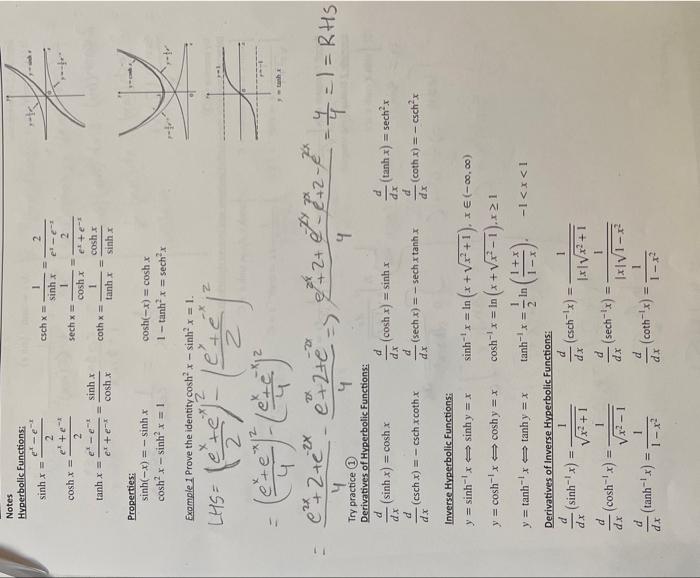 Notes
Hyperbolic Functions:
sinh x = (e^x − e^−x)/2    csch x = 1/sinh x = 2/(e^x − e^−x)
cosh x = (e^x + e^−x)/2    sech x = 1/cosh x = 2/(e^x + e^−x)
tanh x = (e^x − e^−x)/(e^x + e^−x) = sinh x/cosh x    coth x = 1/tanh x = cosh x/sinh x
Properties:
sinh(−x) = − sinh x    cosh(−x) = cosh x
cosh² x − sinh² x = 1    1 − tanh² x = sech² x
y = tanh x
Example 1 Prove the identity cosh² x − sinh² x = 1.
LHS = ((e^x + e^−x)/2)² − ((e^x + e^−x)/2)²
= (e^x + e^−x)²/4 − (e^x + e^−x)²/4
= (e^2x + 2 + e^−2x)/4 − (e^2x + 2 + e^−2x)/4 => (e^2x + 2 + e^−2x − e^2x + 2 − e^−2x)/4 = 4/4 = 1 = RHS
Try practice ①
Derivatives of Hyperbolic Functions:
d/dx (sinh x) = cosh x    d/dx (cosh x) = sinh x    d/dx (tanh x) = sech² x
d/dx (csch x) = − csch x coth x    d/dx (sech x) = − sech x tanh x    d/dx (coth x) = − csch² x
Inverse Hyperbolic Functions:
y = sinh⁻¹ x ⟺ sinh y = x    sinh⁻¹ x = ln(x + √(x² + 1)), x ∈ (−∞, ∞)
y = cosh⁻¹ x ⟺ cosh y = x    cosh⁻¹ x = ln(x + √(x² − 1)), x ≥ 1
y = tanh⁻¹ x ⟺ tanh y = x    tanh⁻¹ x = 1/2 ln((1 + x)/(1 − x)), −1 < x < 1
Derivatives of Inverse Hyperbolic Functions:
d/dx (sinh⁻¹ x) = 1/√(x² + 1)    d/dx (csch⁻¹ x) = 1/(|x|√(x² + 1))
d/dx (cosh⁻¹ x) = 1/√(x² − 1)    d/dx (sech⁻¹ x) = 1/(|x|√(1 − x²))
d/dx (tanh⁻¹ x) = 1/(1 − x²)    d/dx (coth⁻¹ x) = 1/(1 − x²)